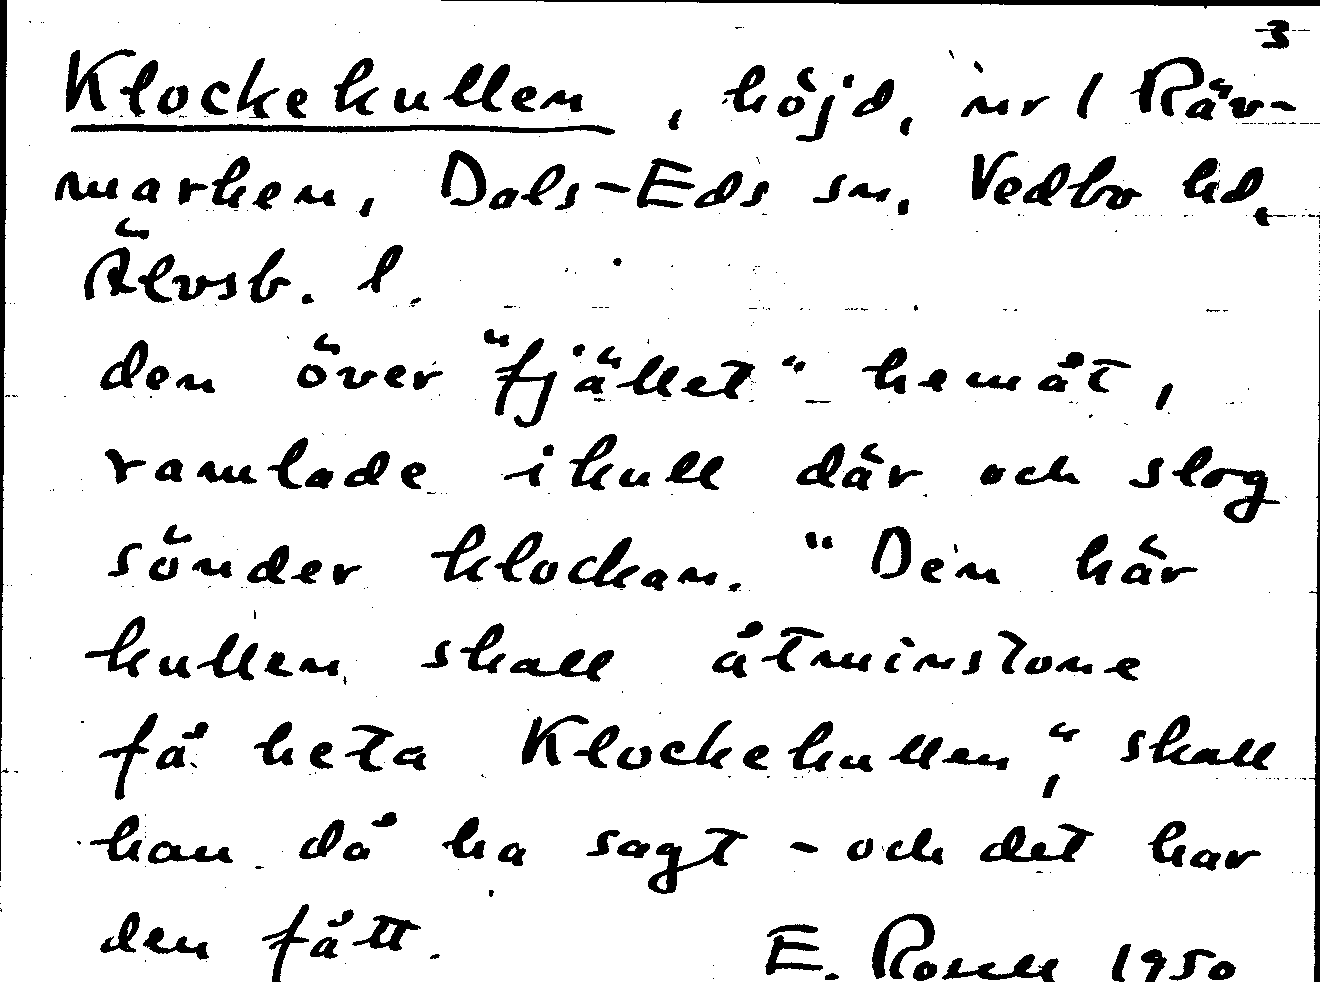 3
Klockekullen, höjd, nr 1 Räv-
marken, Dals-Eds sn, Vedbo hd,
Älvsb. l.
den över "fjället" hemåt,
ramlade ikull där och slog
sönder klockan. "Den här
kullen skall åtminstone
få heta Klockekullen", skall
han då ha sagt - och det har
den fått. E. Rosell 1950